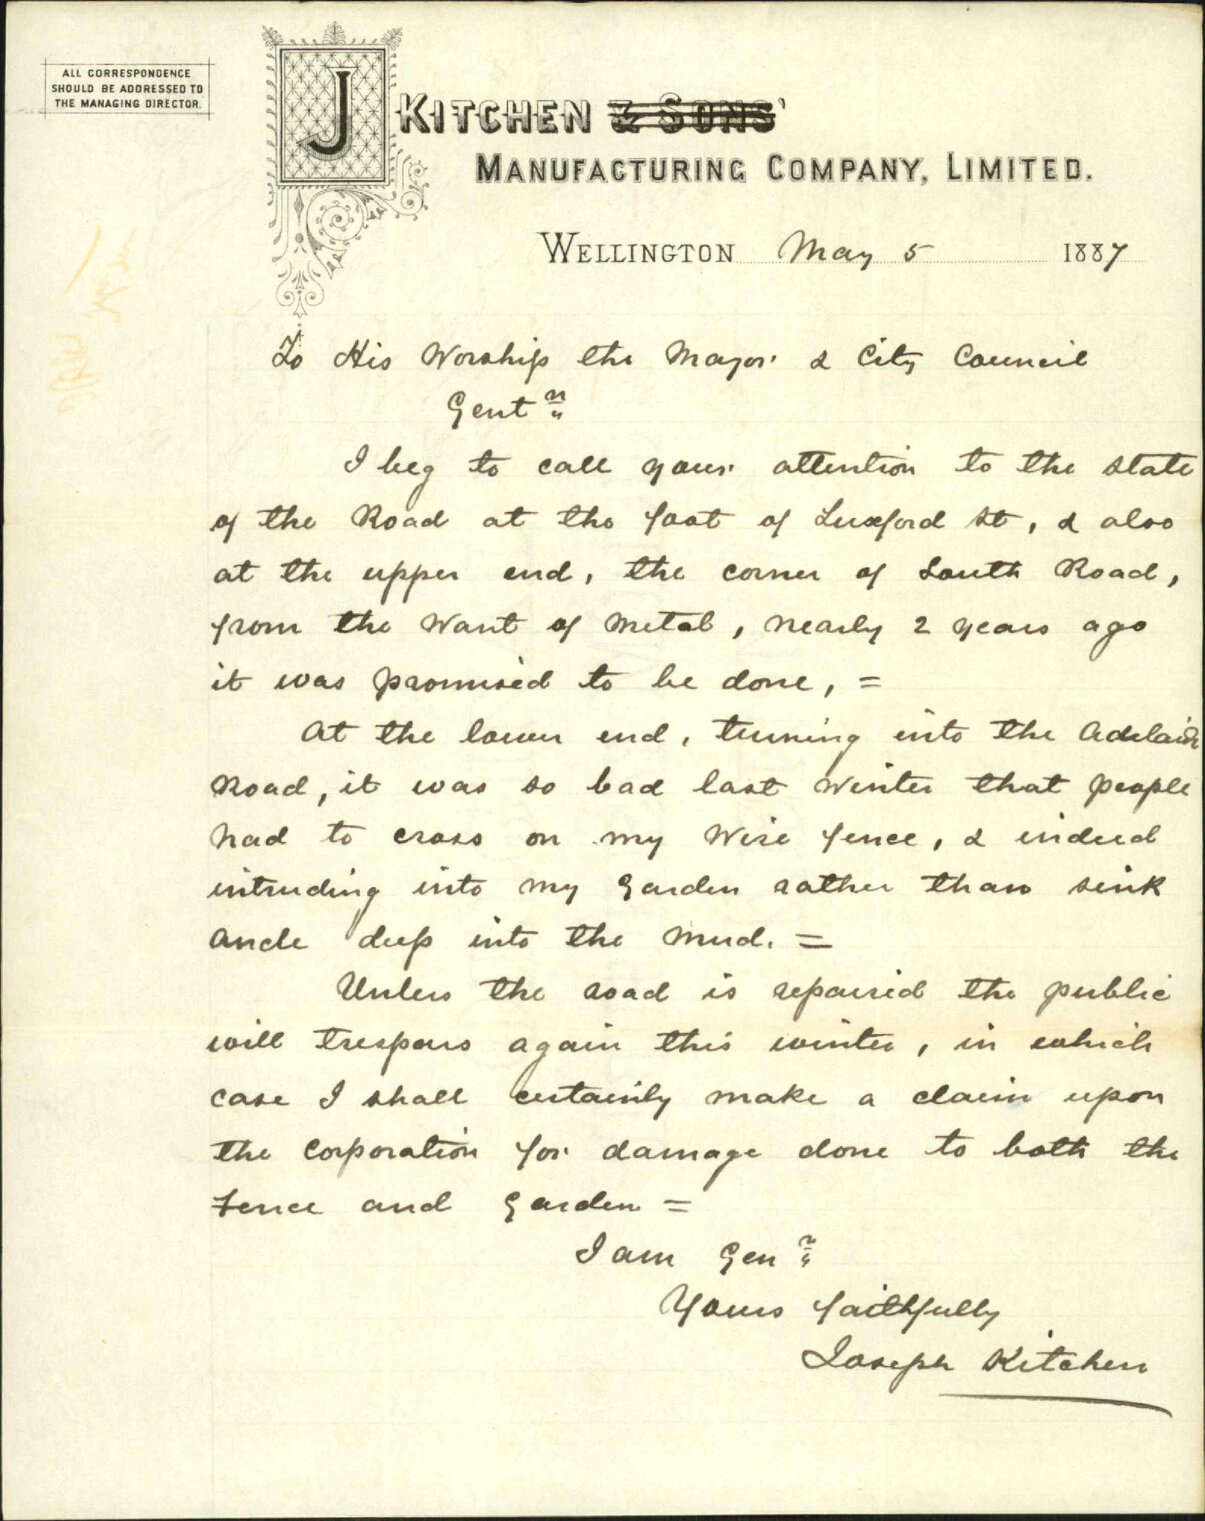 ALL CORRESPONDENCE
SHOULD BE ADDRESSED TO
THE MANAGING DIRECTOR.
J KITCHEN & SONS'
MANUFACTURING COMPANY, LIMITED.
WELLINGTON May 5 1887
To His Worship the Mayor & City Council
Gentn
I beg to call your attention to the state
of the Road at the foot of Luxford St, & also
at the upper end, the corner of South Road,
from the want of metal, nearly 2 years ago
it was promised to be done, =
At the lower end, turning into the Adelaide
Road, it was so bad last winter that people
had to cross on my wire fence, & indeed
intruding into my Garden rather than sink
ancle deep into the mud. =
Unless the road is repaired the public
will trespass again this winter, in which
case I shall certainly make a claim upon
the Corporation for damage done to both the
fence and Garden =
I am Genn
Yours faithfully
Joseph Kitchen